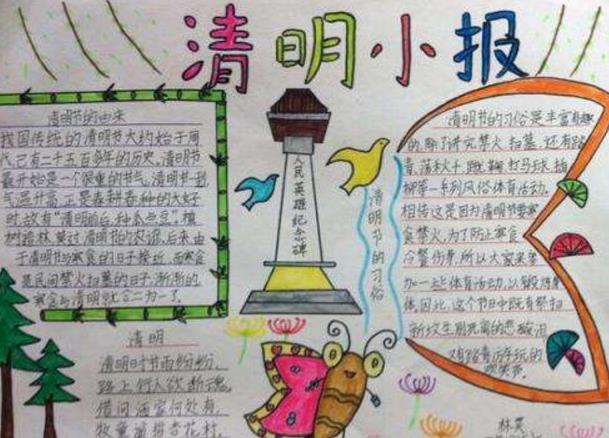 清明小报
清明节的由来
我国传统的清明节大约始于周
代,已有二千五百多年的历史,清明节
最开始是一个很重要的节气,清明节一到,
气温升高,正是春耕春种的大好
时,故有“清明前后,种瓜点豆”,植
树造林,莫过清明”的农谚,后来,由
于清明节与寒食的日子接近,而寒食
是民间禁火扫墓的日子,渐渐的,
寒食与清明就合二为一了。
清明
清明时节雨纷纷,
路上行人欲断魂,
借问酒家何处有,
牧童遥指杏花村。
人民英雄纪念碑
清明节的习俗
清明节的习俗是丰富有趣
的,除了讲究禁火、扫墓,还有踏
青、荡秋千、蹴鞠、打马球、插
柳等一系列风俗体育活动,
相传这是因为清明节要寒
食禁火,为了防止寒食
冷餐伤身,所以大家来参
加一些体育活动,以锻炼身
体,因此,这个节日中既有祭扫
新坟生别死离的悲酸泪
又有踏青历年玩的
欢笑声。
林昊